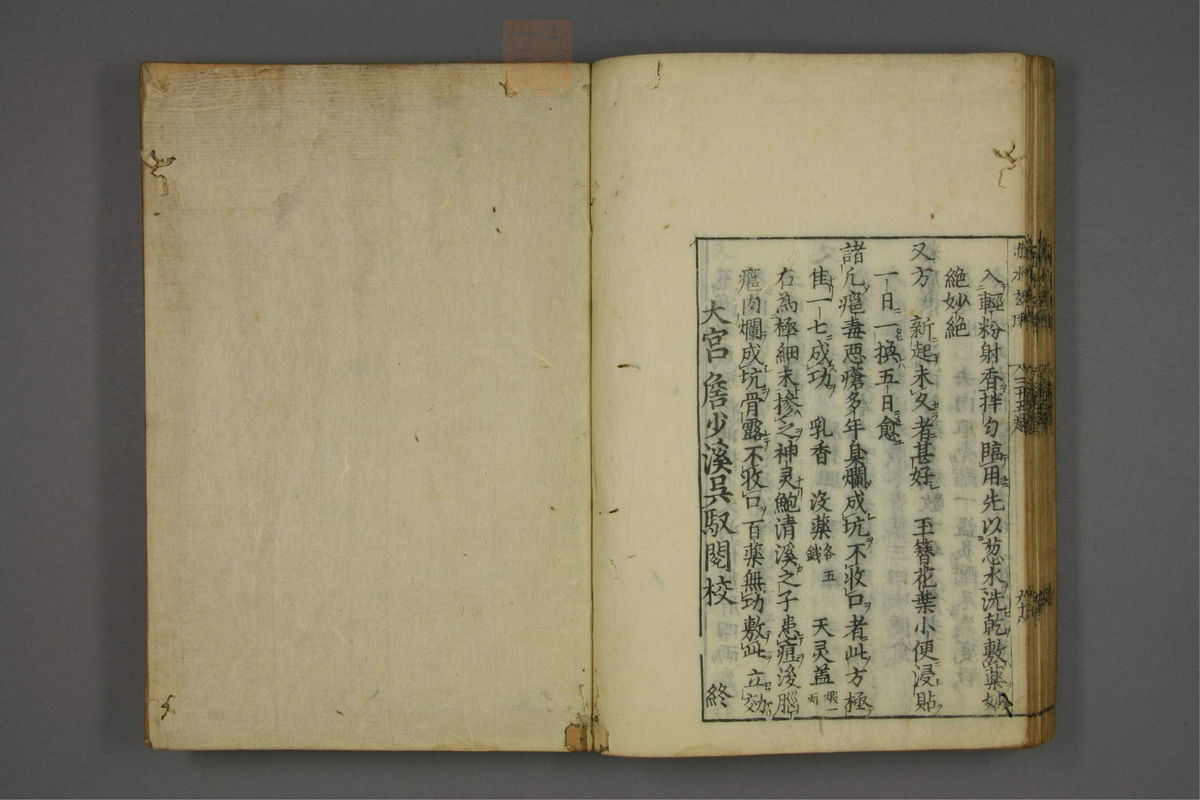 入輕粉射香拌匀臨用先以葱水洗乾敷藥妙
絶妙絶
又方　新起未久者甚好　玉簪花葉小便浸貼
一日一換五日愈
諸凢瘡毒惡瘡多年臭爛成坑不收口者此方極
佳一七成功　乳香　沒藥各五錢　天灵盖煆一兩
右為極細末摻之神灵鮑清溪之子患痘後腦
瘡肉爛成坑骨露不收口百藥無功敷此立効
大宮　詹少溪吳馭閱校　終